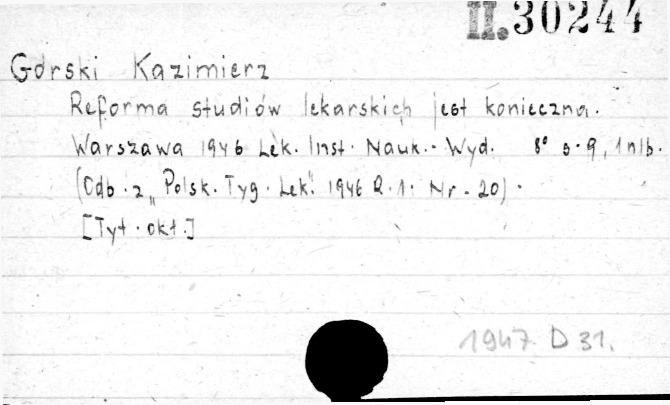 II.30244
Górski Kazimierz
Reforma studiów lekarskich jest konieczna.
Warszawa 1946 Lek. Inst. Nauk.-Wyd. 8° s.9, 1 nlb.
(Odb. z „Polsk. Tyg. Lek". 1946 R.1. Nr.20).
[Tyt. okł.]
1947 D 31.